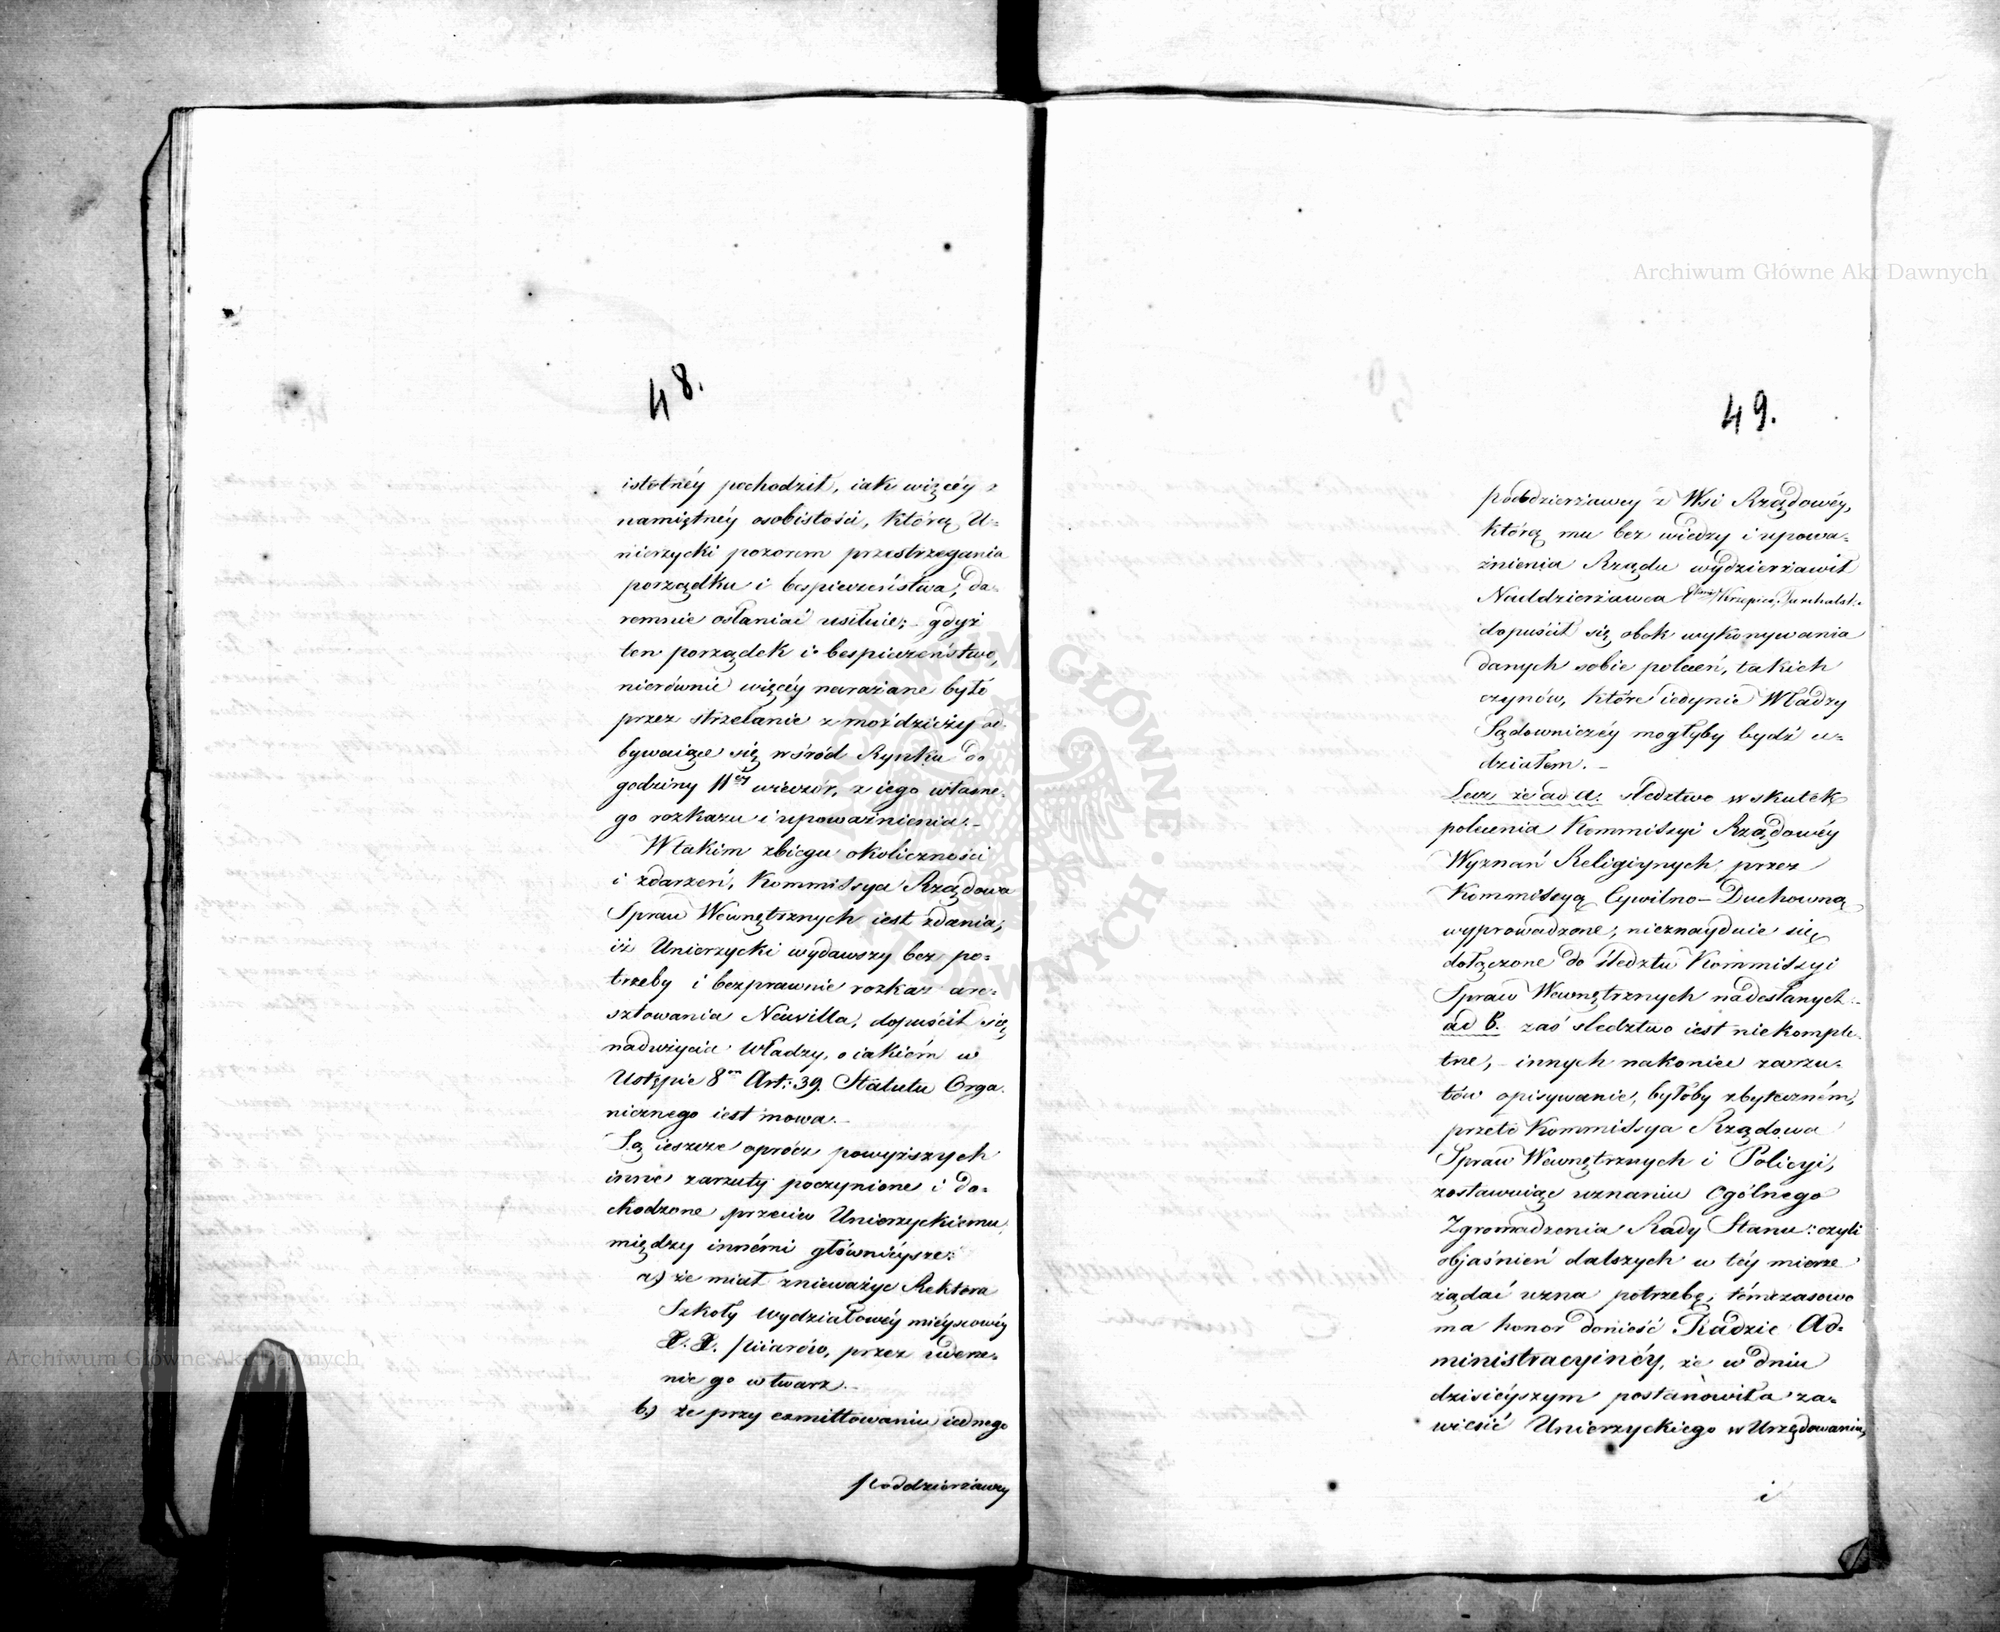 48.
istotnéy pochodził, iak więcéy z
namiętnéy osobistości, którą U=
nierzycki pozorem przestrzegania
porządku i bespieczeństwa, da=
remnie osłaniać usiłuie; - gdyż
ten porządek i bespieczeństwo,
nierównie więcéy narażane było
przez strzelanie z moździeży od=
bywaiące się wśród Rynku do
godziny 11éy wieczór, z iego własne=
go rozkazu i upoważnienia. -
W takim zbiegu okoliczności
i zdarzeń, Kommissya Rządowa
Spraw Wewnętrznych iest zdania,
iż Unierzycki wydawszy bez po=
trzeby i bezprawnie rozkaz are=
sztowania Neuvilla, dopuścił się
nadużycia Władzy, o iakiém w
Ustępie 8m Art: 39. Statutu Orga=
nicznego iest mowa. -
Są ieszcze oprócz powyższych
inne zarzuty poczynione i do=
chodzone przeciw Unierzyckiemu,
między innémi głównieysze:
a) że miał znieważyć Rektora
Szkoły Wydziałowéy mieyscowéy
X. X. Piiarów, przez uderze=
nie go w twarz. -
b) że przy exmittowaniu iednego
Poddzierżawcy
49.
poddzierżawcy z Wsi Rządowéy,
którą mu bez wiedzy i upowa=
żnienia Rządu wydzierżawił
Naddzierżawca
dopuścił się obok wykonywania
danych sobie poleceń, takich
czynów, które iedynie Władzy
Sądowniczéy mogłyby bydź u=
działem. -
Lecz że ad a. śledztwo w skutek
polecenia Kommissyi Rządowéy
Wyznań Religiynych przez
Kommissyą Cywilno-Duchowną
wyprowadzone, nieznayduie się
dołączone do śledztw Kommissyi
Spraw Wewnętrznych nadesłanych -
ad b. zaś śledztwo iest niekomple=
tne, - innych nakoniec zarzu=
tów opisywanie, byłoby zbyteczném,
przeto Kommissya Rządowa
Spraw Wewnętrznych i Policyi,
zostawuiąc uznaniu Ogólnego
Zgromadzenia Rady Stanu: czyli
objaśnień dalszych w téy mierze
żądać uzna potrzebę, tymczasowo
ma honor donieść Radzie Ad=
ministracyinéy, że w dniu
dzisieyszym postanowiła za=
wiesić Unierzyckiego w Urzędowaniu,
i
Archiwum Główne Akt Dawnych
Archiwum Główne Akt Dawnych
ARCHIWUM GŁÓWNE AKT DAWNYCH